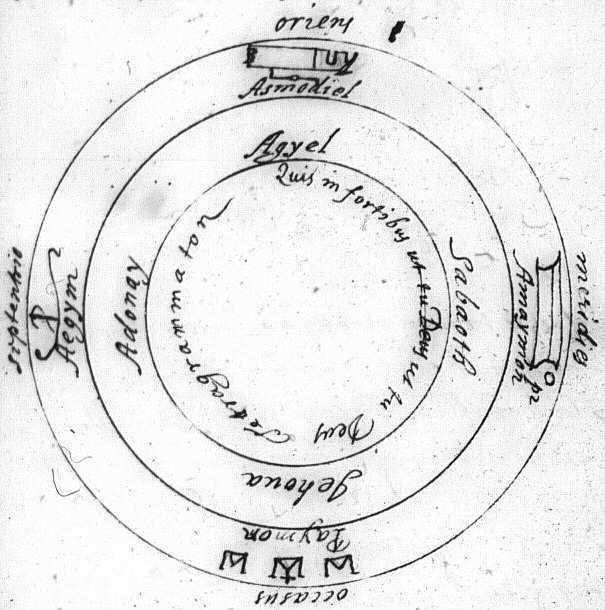 oriens
Asmodiel
Agyel
Quis in fortibus ut tu Deus ut tu Deus Tetragrammaton
Sabaoth
Amaymon
meridies
Jehova
Paymon
occasus
Adonay
Aegym
septentrio